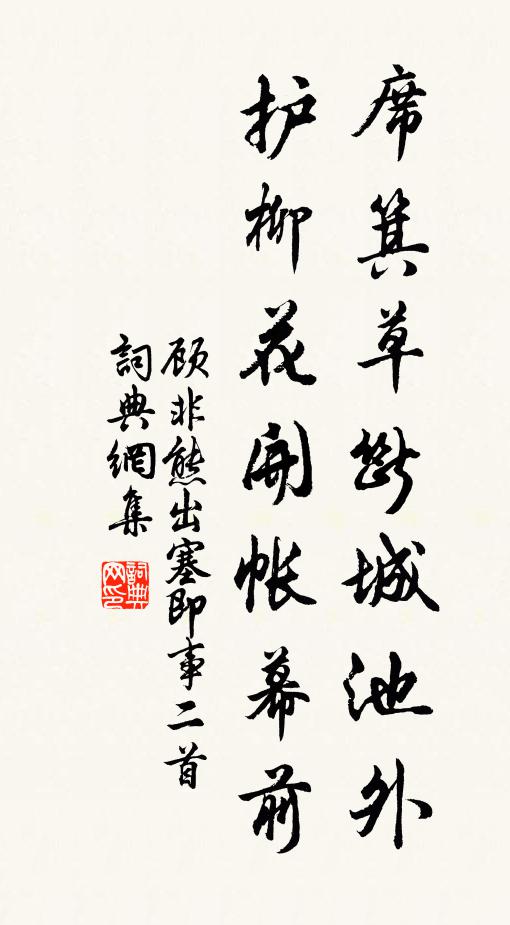 席箕草斷城池外
护柳花開帐幕前
顾非熊出塞即事二首
詞典網集
詞典网印